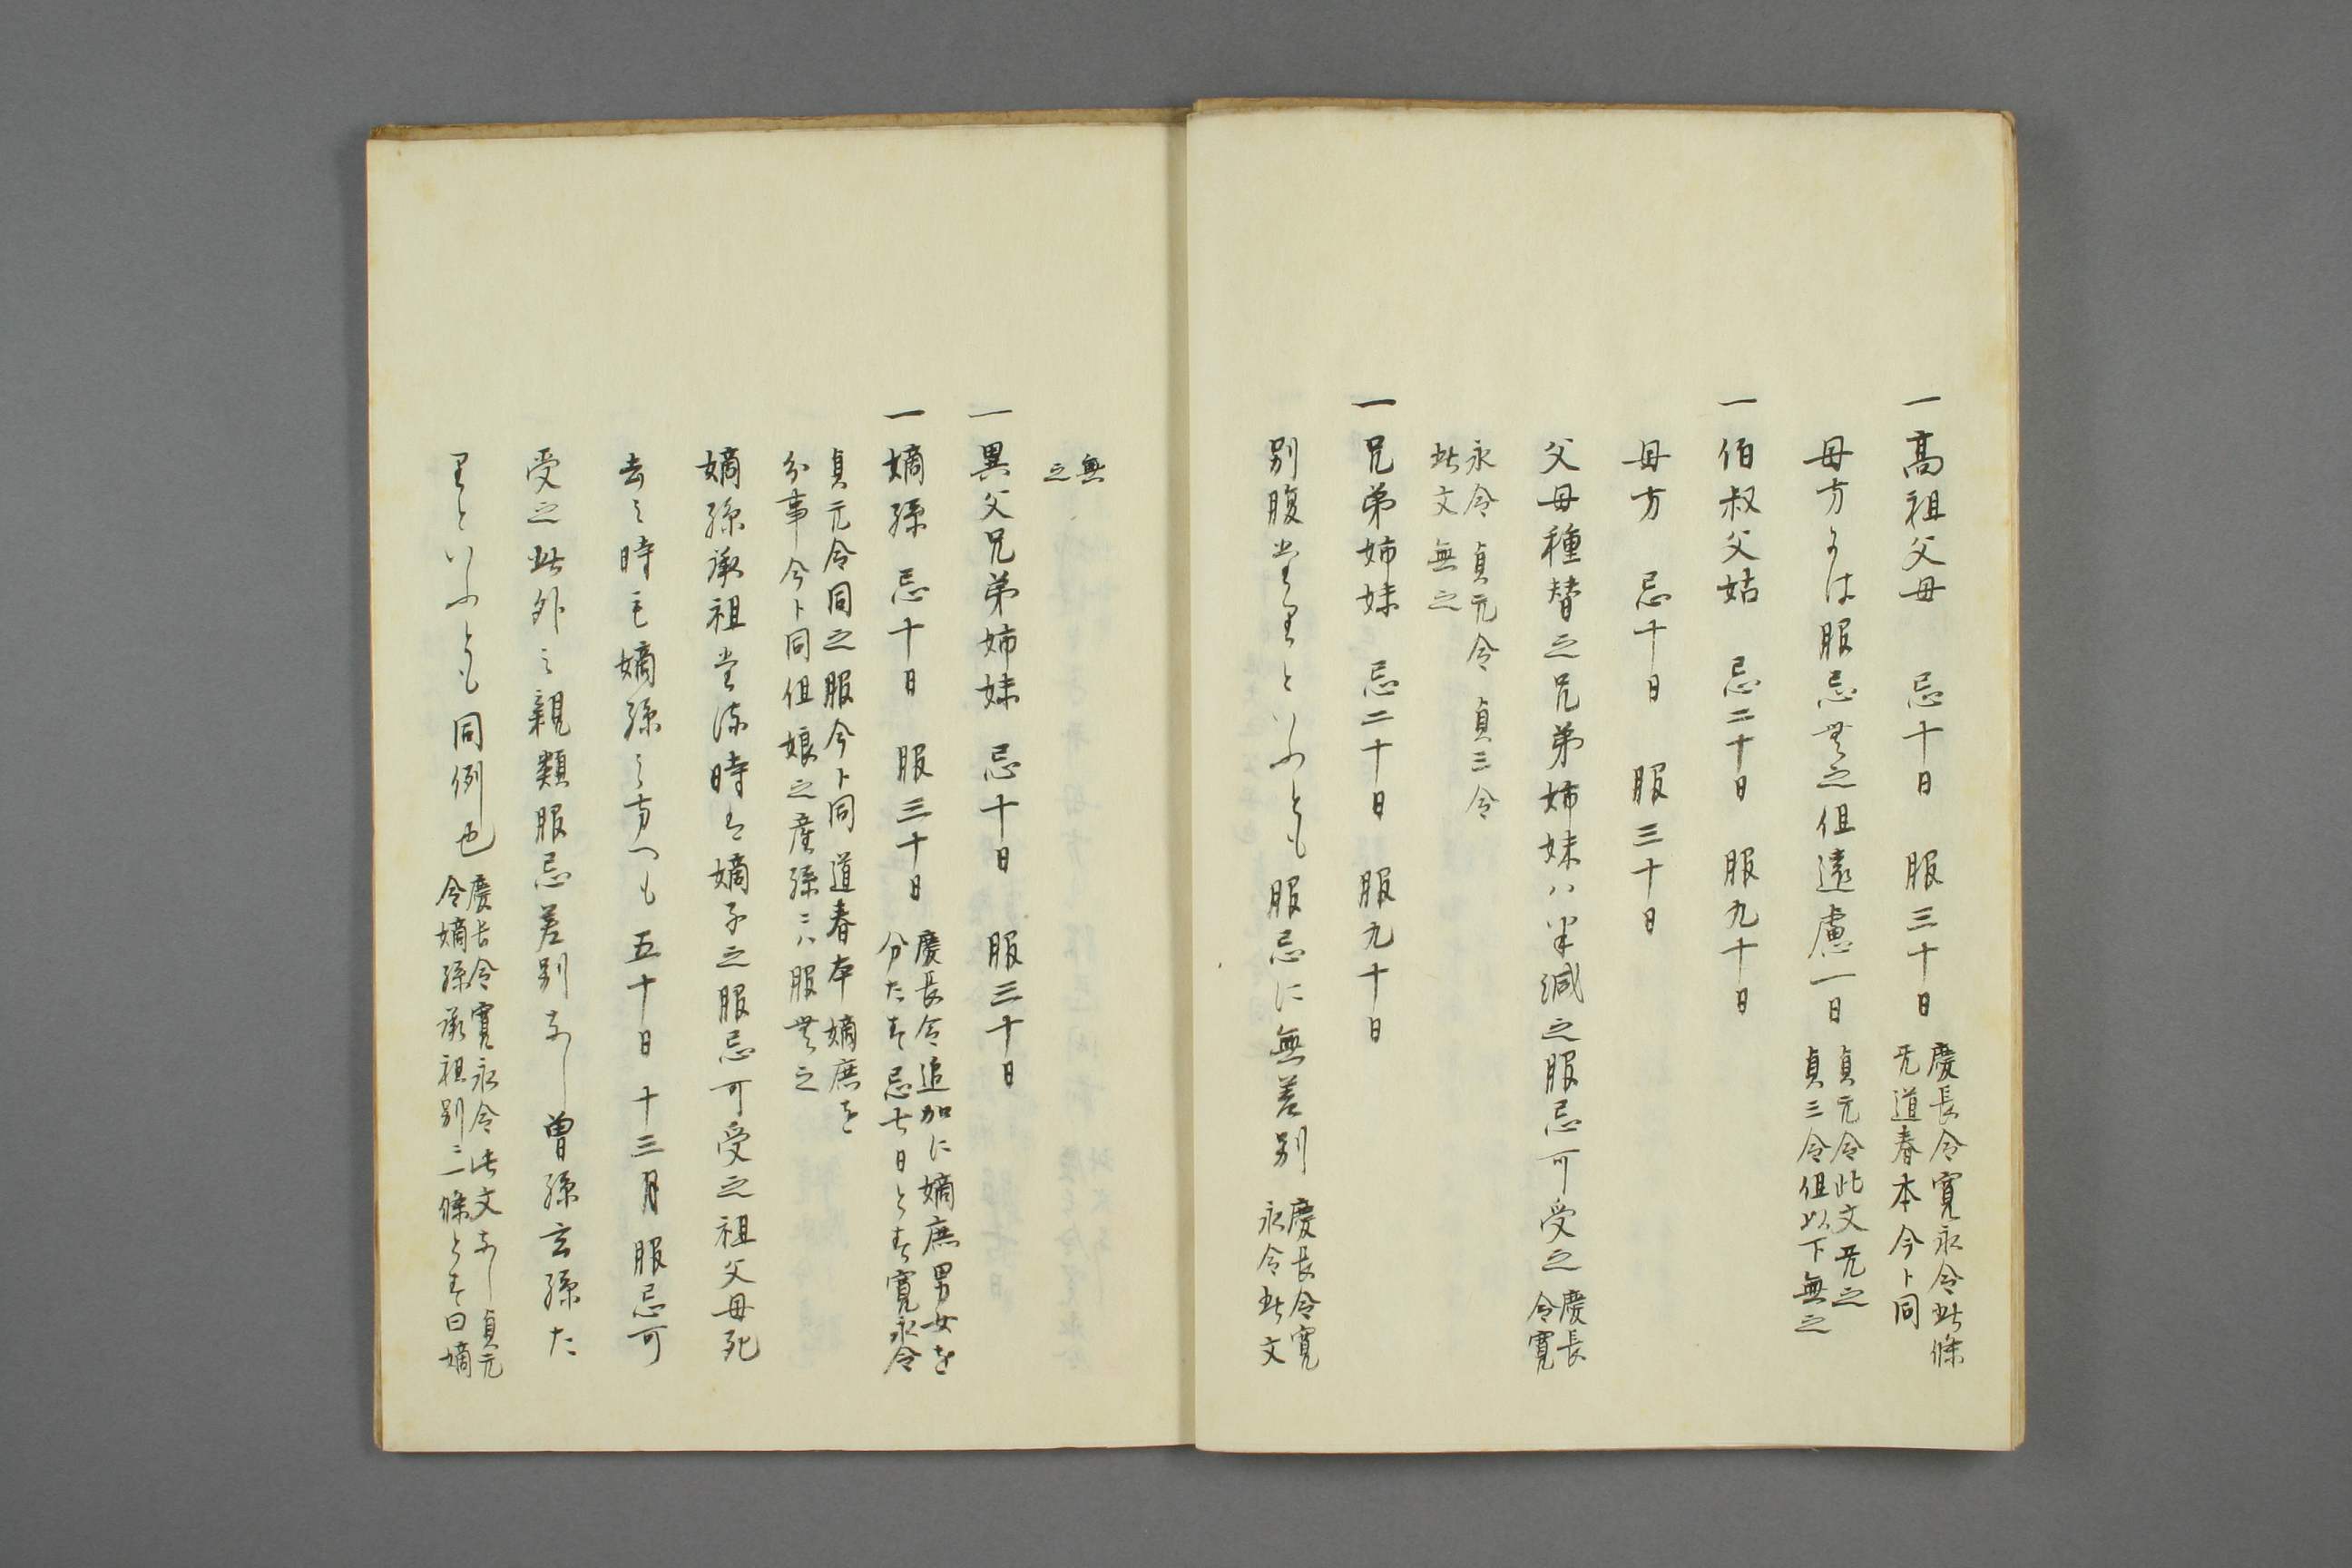 一高祖父母　忌十日　服三十日
慶長令寛永令此條
旡道春本今ト同
母方には服忌無之但遠慮一日
貞元令此文旡之
貞三令但以下無之
一伯叔父姑　忌二十日　服九十日
母方　忌十日　服三十日
父母種替之兄弟姉妹ハ半減之服忌可受之
慶長
令寛
永令　貞元令　貞三令
此文無之
一兄弟姉妹　忌二十日　服九十日
別腹たりといふとも服忌に無差別
慶長令寛
永令此文
無
之
一異父兄弟姉妹　忌十日　服三十日
一嫡孫　忌十日　服三十日
慶長令追加に嫡庶男女を
分たす忌七日とす寛永令
貞元令同之服今ト同　道春本　嫡庶を
分事今ト同但娘之産孫ニハ服無之
嫡孫承祖たる時は嫡子之服忌可受之祖父母死
去之時も嫡孫之方へも五十日十三月服忌可
受之此外之親類服忌差別なし曽孫玄孫た
りといふとも同例也
慶長令寛永令此文なし貞元
令嫡孫承祖別ニ一條とす曰嫡